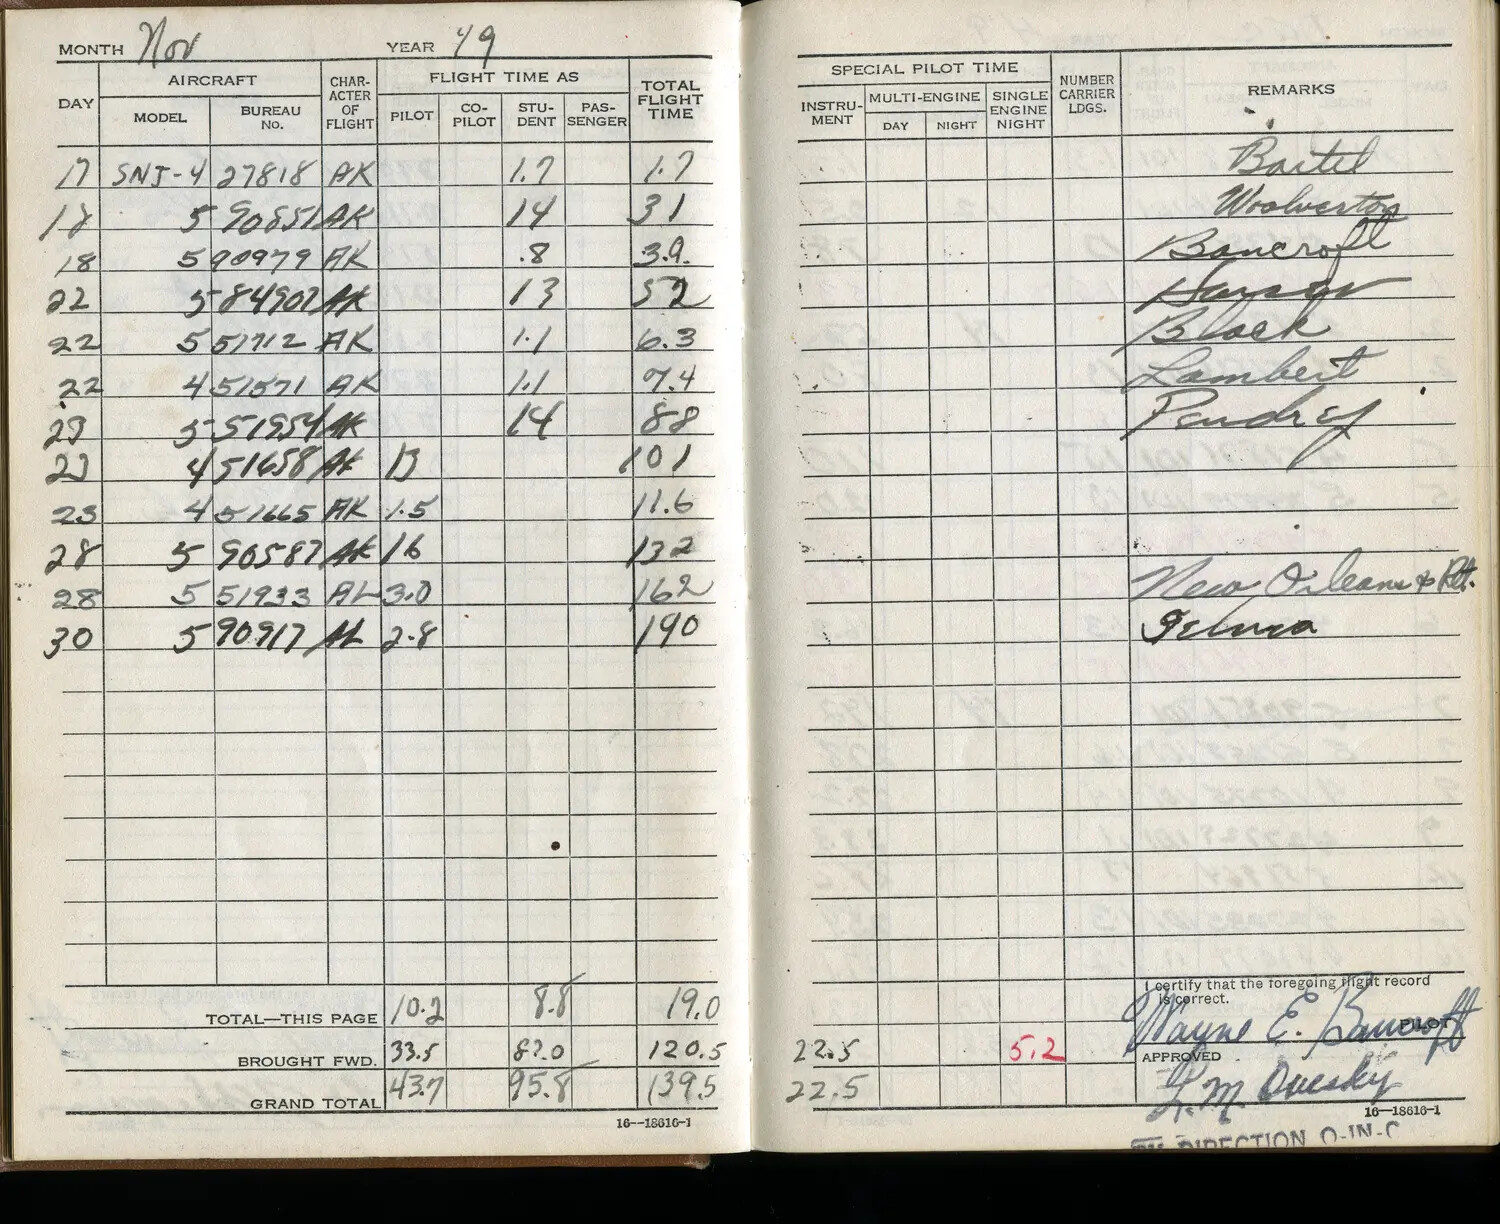 MONTH Nov YEAR 49
DAY AIRCRAFT CHARACTER OF FLIGHT FLIGHT TIME AS TOTAL FLIGHT TIME
MODEL BUREAU No. PILOT CO-PILOT STUDENT PASSENGER
17 SNJ-4 27818 AK 1.7 1.7
18 5 90851 AK 14 31
18 5 90979 AK .8 3.9.
22 5 84907 AK 13 52
22 5 51712 AK 1.1 6.3
22 4 51571 AK 1.1 7.4
23 5 51954 AK 14 88
23 4 51658 AK 13 101
23 4 51665 AK 1.5 11.6
28 5 90587 AK 16 132
28 5 51933 AL 3.0 162
30 5 90917 AL 2.8 190
TOTAL—THIS PAGE 10.2 8.8 19.0
BROUGHT FWD. 33.5 87.0 120.5
GRAND TOTAL 43.7 95.8 139.5
16—18616-1
SPECIAL PILOT TIME NUMBER CARRIER LDGS. REMARKS
INSTRUMENT MULTI-ENGINE SINGLE ENGINE NIGHT
DAY NIGHT
Bartel
Woolverton
Bancroft
Black
Lambert
Pendrey
New Orleans & Ret.
Selma
I certify that the foregoing flight record
is correct.
Wayne E. Bancroft PILOT
22.5 5.2
APPROVED
22.5
L. M.
16—18616-1
BY DIRECTION O-IN-C